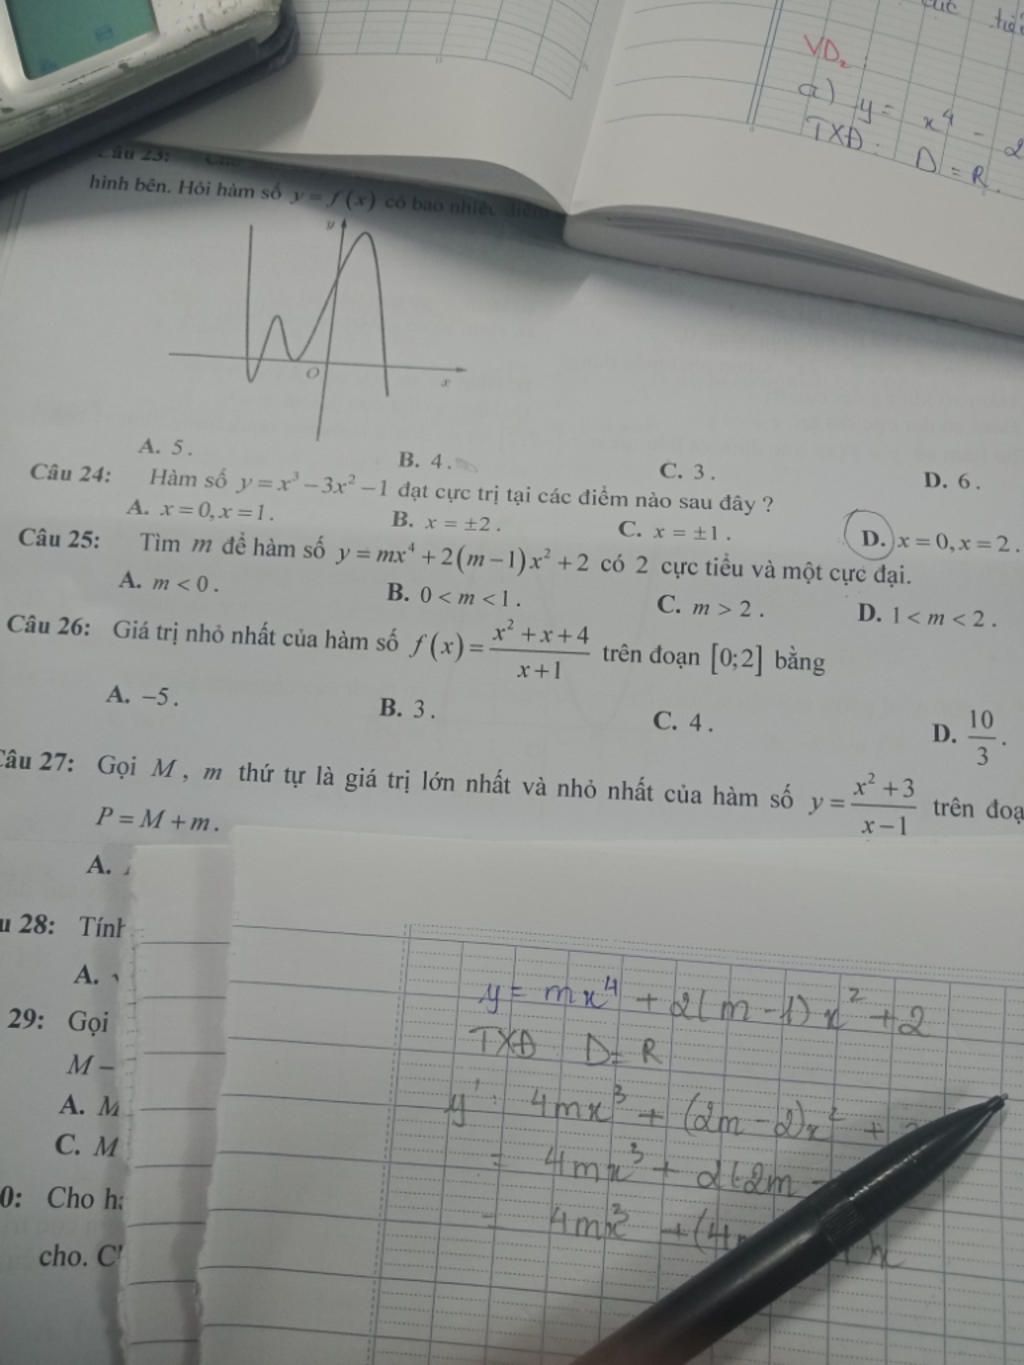 cực
VD₂:
a) y = x⁴ - 2
TXĐ: D = R.
Câu 23:
hình bên. Hỏi hàm số y = f(x) có bao nhiêu điểm
y
O
x
A. 5. B. 4. C. 3. D. 6.
Câu 24: Hàm số y = x³ − 3x² − 1 đạt cực trị tại các điểm nào sau đây ?
A. x = 0, x = 1. B. x = ±2. C. x = ±1. D. x = 0, x = 2.
Câu 25: Tìm m để hàm số y = mx⁴ + 2(m−1)x² + 2 có 2 cực tiểu và một cực đại.
A. m < 0. B. 0 < m < 1. C. m > 2. D. 1 < m < 2.
Câu 26: Giá trị nhỏ nhất của hàm số f(x) = (x² + x + 4)/(x + 1) trên đoạn [0;2] bằng
A. −5. B. 3. C. 4. D. 10/3.
Câu 27: Gọi M, m thứ tự là giá trị lớn nhất và nhỏ nhất của hàm số y = (x² + 3)/(x − 1) trên
P = M + m.
A.
28: Tính
A.
29: Gọi
M −
A. M
C. M
0: Cho
cho.
y = mx⁴ + 2(m-1)x² + 2
TXĐ D = R
y': 4mx³ + (2m-2)x² +
= 4mx³ + 2(2m
= 4mx³ + (4 )x